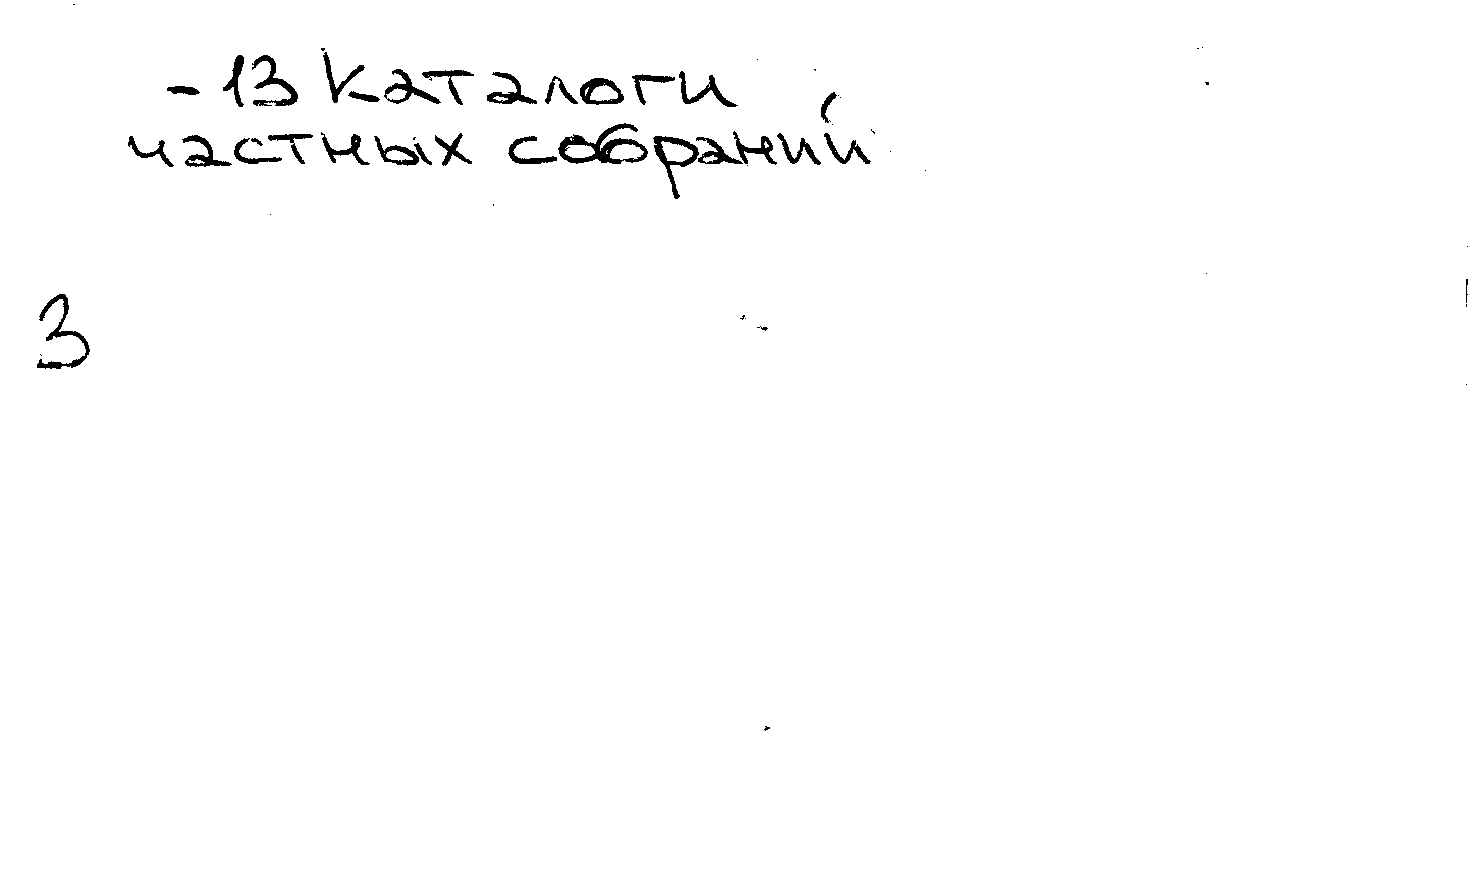 - 13 Каталоги
частных собраний
3